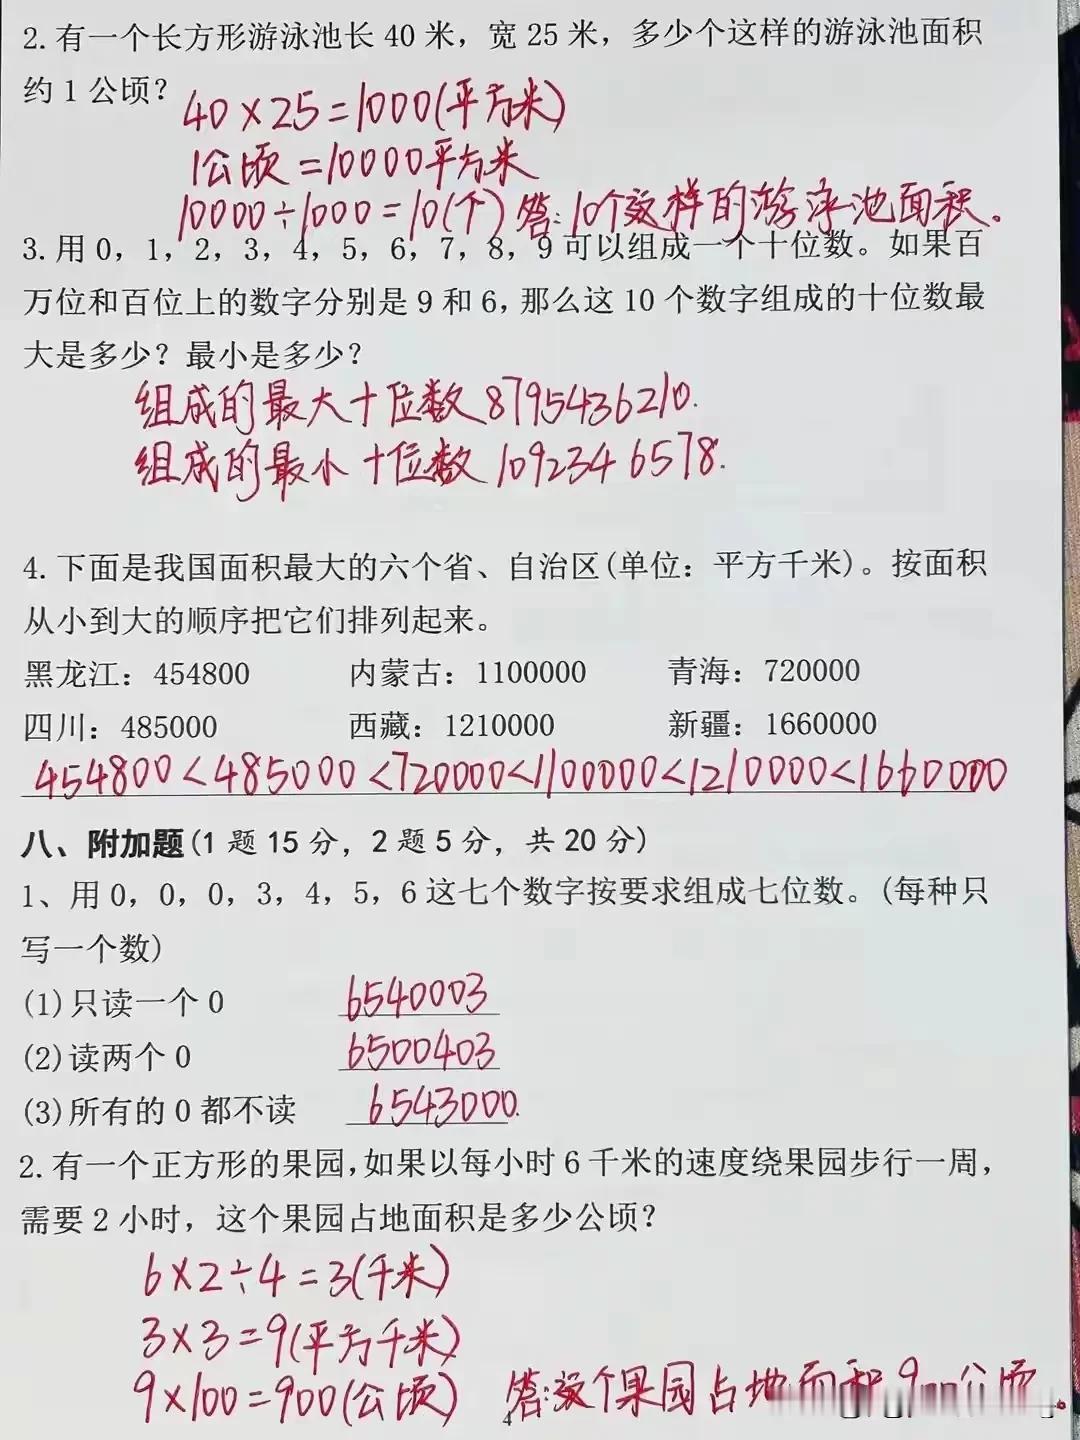 2.有一个长方形游泳池长40米，宽25米，多少个这样的游泳池面积
约1公顷？
40×25=1000(平方米)
1公顷=10000平方米
10000÷1000=10(个) 答:10个这样的游泳池面积。
3.用0，1，2，3，4，5，6，7，8，9可以组成一个十位数。如果百
万位和百位上的数字分别是9和6，那么这10个数字组成的十位数最
大是多少？最小是多少？
组成的最大十位数8795436210.
组成的最小十位数1092346578.
4.下面是我国面积最大的六个省、自治区(单位：平方千米)。按面积
从小到大的顺序把它们排列起来。
黑龙江：454800 内蒙古：1100000 青海：720000
四川：485000 西藏：1210000 新疆：1660000
454800<485000<720000<1100000<1210000<1660000
八、附加题(1题15分，2题5分，共20分)
1、用0，0，0，3，4，5，6这七个数字按要求组成七位数。(每种只
写一个数)
(1)只读一个0 6540003
(2)读两个0 6500403
(3)所有的0都不读 6543000.
2.有一个正方形的果园，如果以每小时6千米的速度绕果园步行一周，
需要2小时，这个果园占地面积是多少公顷？
6×2÷4=3(千米)
3×3=9(平方千米)
9×100=900(公顷) 答:这个果园占地面积900公顷
4